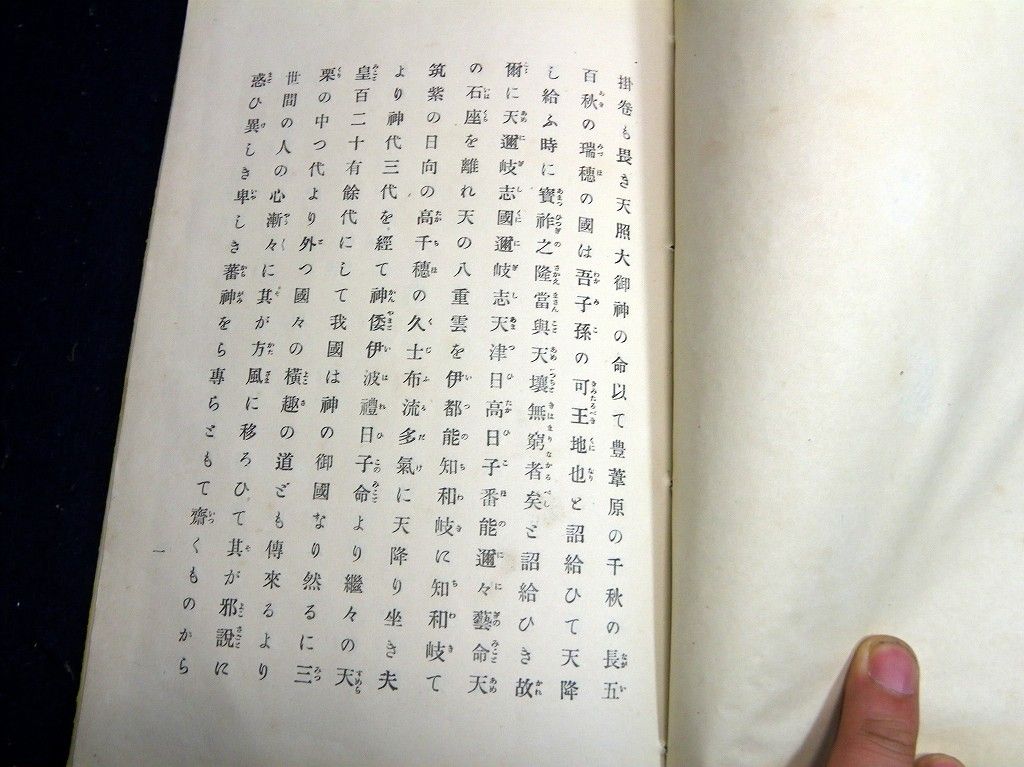 掛卷も畏き天照大御神の命以て豊葦原の千秋の長五
百秋の瑞穂の國は吾子孫の可王地也と詔給ひて天降
し給ふ時に寳祚之隆當與天壤無窮者矣と詔給ひき故
爾に天邇岐志國邇岐志天津日高日子番能邇々藝命天
の石座を離れ天の八重雲を伊都能知和岐に知和岐て
筑紫の日向の高千穗の久士布流多氣に天降り坐き夫
より神代三代を經て神倭伊波禮日子命より繼々の天
皇百二十有餘代にして我國は神の御國なり然るに三
栗の中つ代より外つ國々の横趣の道ども傳來るより
世間の人の心漸々に其が方風に移ろひて其が邪説に
惑ひ異しき卑しき蕃神をら專らともて齋くものから
一